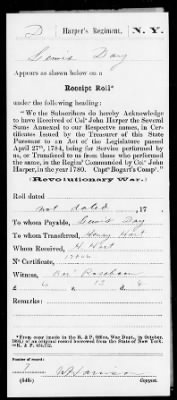 D Harper's Regiment, N. Y.
Lewis Day
Appears as shown below on a
Receipt Roll*
under the following heading:
"We the Subscribers do hereby Acknowledge to
have Received of Col° John Harper the Several
Sums Annexed to our Respective names, in Cer-
tificates Issued by the Treasurer of this State
Pursuant to an Act of the Legislature passed
April 27th, 1784, being for Service performed by
us, or Transfered to us from those who performed
the same, in the Regim' Commanded by Col° John
Harper, in the year 1780. Capt° Bogart's Comp°."
(Revolutionary War.)
Roll dated
Not dated, 17 .
To whom Payable, Lewis Day
To whom Transferred, Henry Hart
When Received, H. Hart
N° Certificate,
Witness,
Remarks:
Number of record:
7
(546) Copyist.